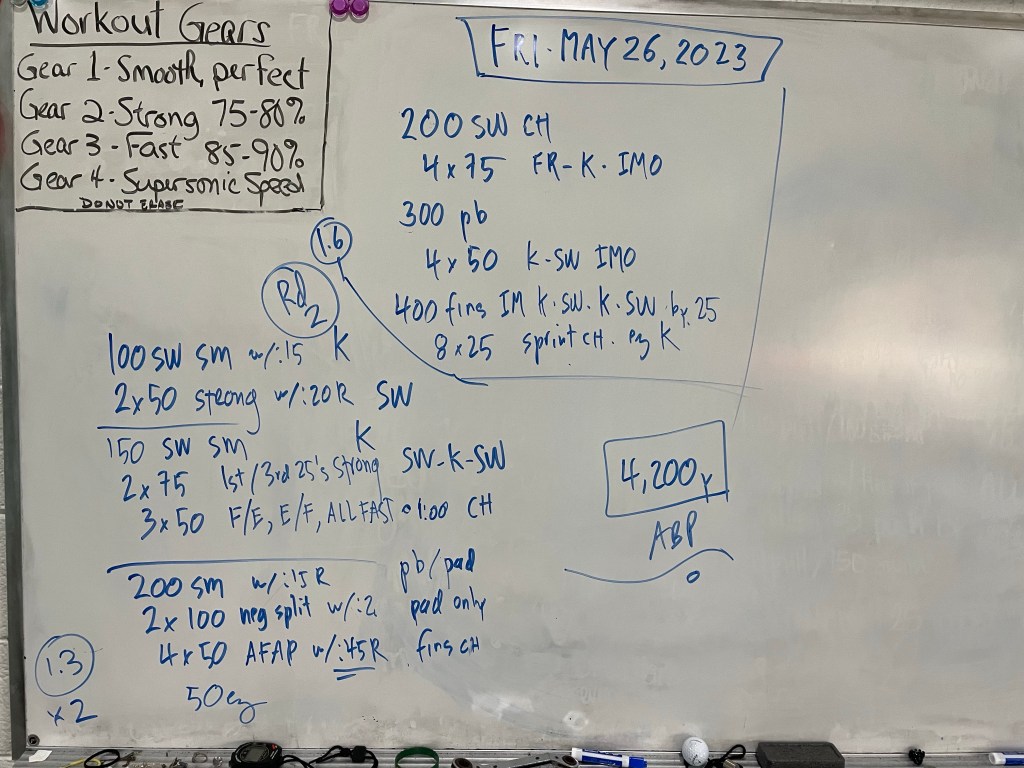 Workout Gears
Gear 1-Smooth, perfect
Gear 2-Strong 75-80%
Gear 3-Fast 85-90%
Gear 4-Supersonic Speed
DO NOT ERASE
FRI. MAY 26, 2023
200 SW CH
4x75 FR-K. IMO
300 pb
4x50 K-SW IMO
400 fins IM K.SW.K.SW by 25
8x25 sprint CH. ez K
1.6
Rd 2
100 SW sm w/:15 K
2x50 strong w/:20R SW
150 SW sm K
2x75 1st/3rd 25's strong SW-K-SW
3x50 F/E, E/F, ALL FAST @1:00 CH
200 sm w/:15R pb/pad
2x100 neg split w/:2 pad only
4x50 AFAP w/:45R fins CH
50 ez
1.3
x2
4,200y
ABP